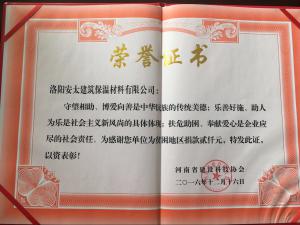 荣誉证书
洛阳安太建筑保温材料有限公司：
守望相助、博爱向善是中华民族的传统美德；乐善好施、助人
为乐是社会主义新风尚的具体体现；扶危助困、奉献爱心是企业应
尽的社会责任。为感谢您单位为贫困地区捐款贰仟元，特发此证，
以资表彰！
河南省建设科技协会
二〇一六年十二月十六日